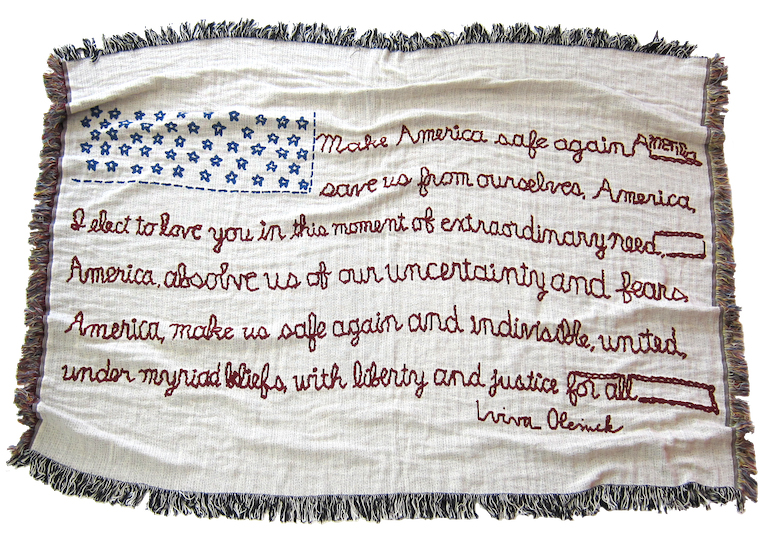 Make America safe again America
save us from ourselves. America,
I elect to love you in this moment of extraordinary need.
America, absolve us of our uncertainty and fears
America, make us safe again and indivisible, united,
under myriad beliefs, with liberty and justice for all